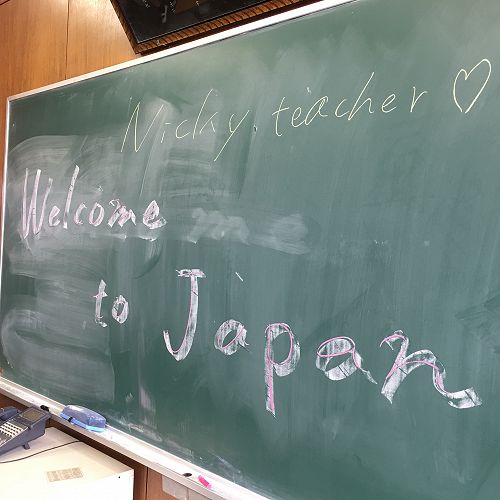 Nicky teacher ♡
Welcome
to Japan